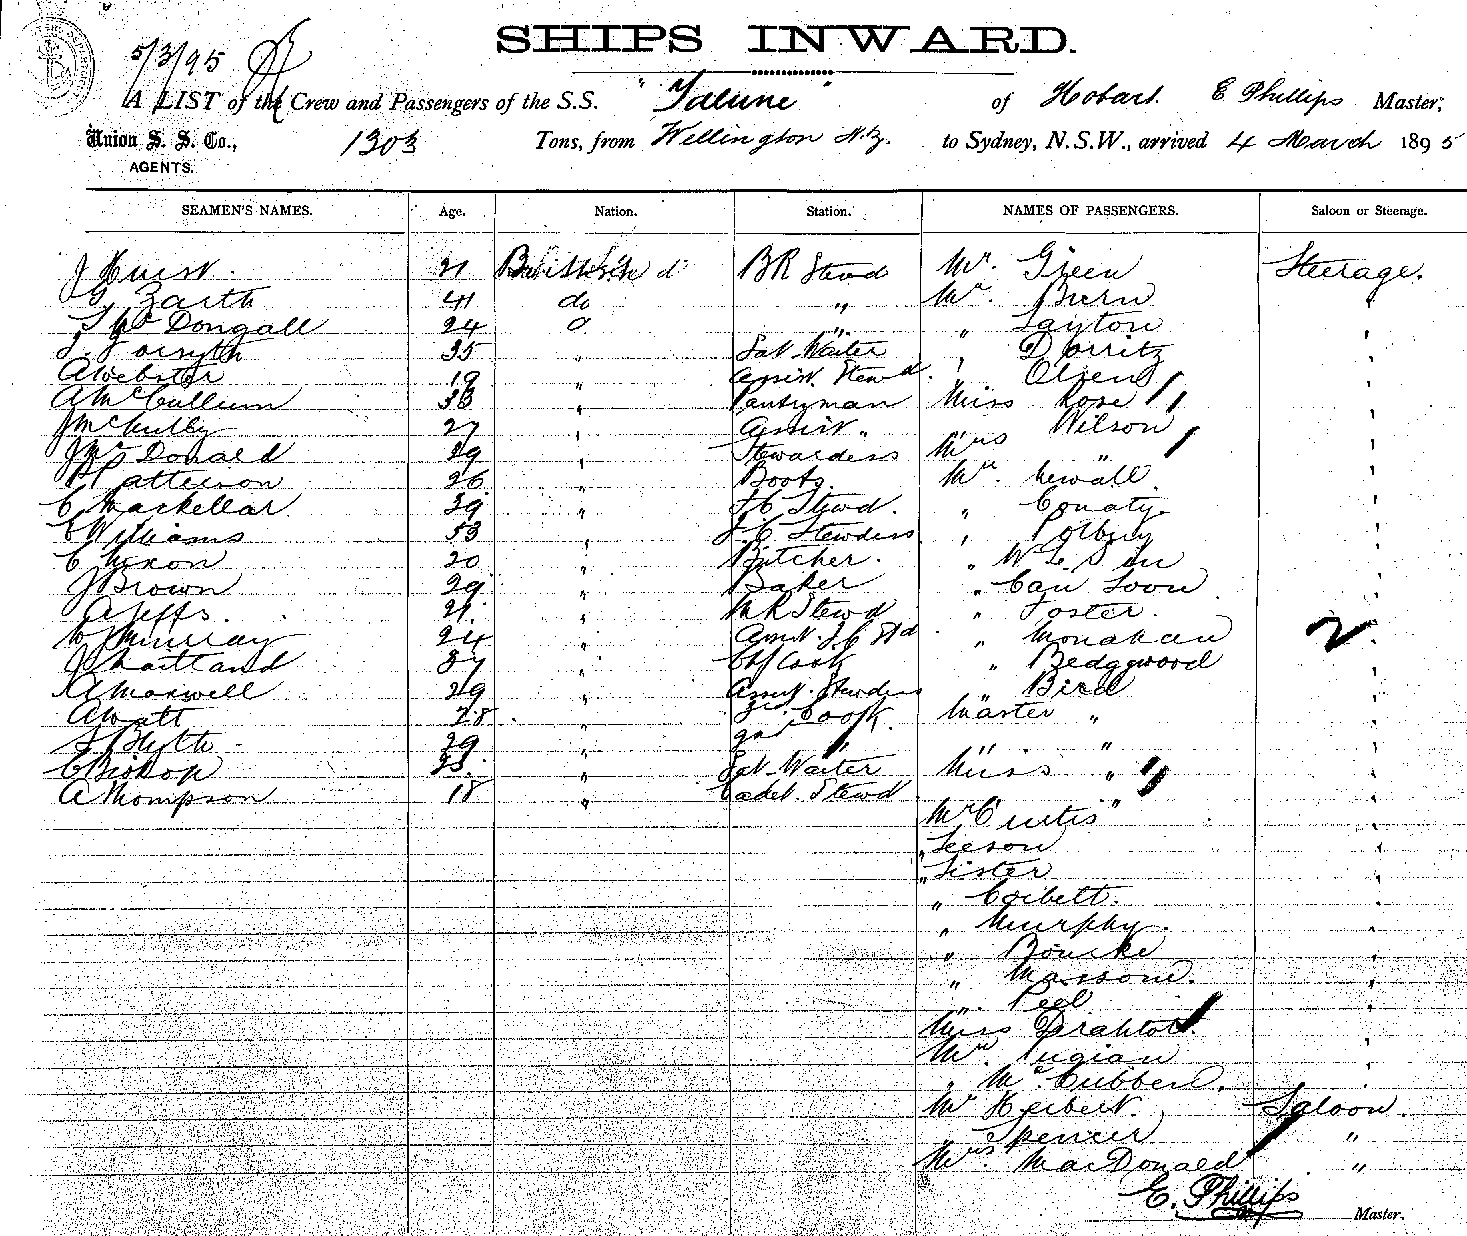 5/3/95
SHIPS INWARD.
A LIST of the Crew and Passengers of the S.S. "Talune" of Hobart. E Phillips Master,
Union S. S. Co., 1303 Tons, from Wellington N.Z. to Sydney, N.S.W., arrived 4 March 1895
AGENTS.
SEAMEN'S NAMES. Age. Nation. Station. NAMES OF PASSENGERS. Saloon or Steerage.
J 21 British BR Stewd Mr. Green Steerage.
Zarth 41 do " Mr. "
McDougall 24 " " Layton "
Forsyth 35 " Sal Waiter " Dorritz "
A Webster 19 " Assist. Stewd. " Olsen "
A McCullum 33 " Pantryman Miss Rose "
J McNulty 27 " Assist " Wilson "
J McDonald 29 " Stewardess Mrs " "
Patterson 26 " Boots. Mr. Newall. "
C Mackellar 39 " F C Stewd. " Conaty "
E Williams 53 " F.C. Stewdess " "
C Nixon 20 " Butcher. " "
J Brown 29 " Baker " Can Soon "
A Jeffs. 21. " M R Stewd " Foster. "
Murray 24 " Assist. F.C. Std " Monahan "
J Maitland 37 " Chf Cook " Bedggwood "
A Maxwell 29 " Assist. Stewdess " Bird "
A Watt 28 " Cook. Master " "
S. Blyth 29 " " " " "
C Bishop 23. " Sal Waiter Miss " "
A Thompson 18 " Cadet. Stewd "
Mr Curtis "
" Leeson "
" Lister "
" Corbett. "
" Murphy. "
" Bourke "
" "
" "
Miss "
Mr. "
" McCubben. "
Mr Herbert. Saloon.
" Spencer "
Mrs. MacDonald "
E. Phillips
Master.